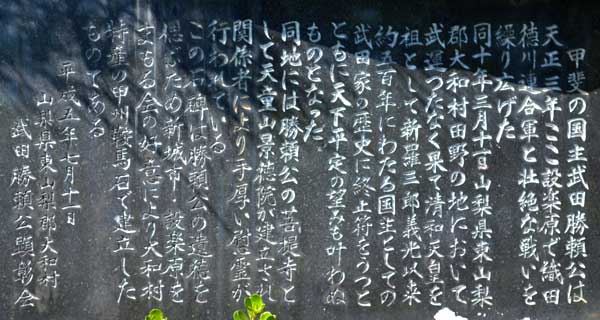 甲斐の国主武田勝頼公は
天正三年ここ設楽原で織田
徳川連合軍と壮絶な戦いを
繰り広げた
同十年三月十一日山梨県東山梨
郡大和村田野の地において
武運つたなく果て清和天皇を
祖として新羅三郎義光以来
約五百年にわたる国主としての
武田家の歴史に終止符をうつと
ともに天下平定の望みも叶わぬ
ものとなった
同地には勝頼公の菩提寺と
して天童山景徳院が建立され
関係者により手厚い慰霊が
行われている
この石碑は勝頼公の遺徳を
偲ぶため新城市・設楽原を
まもる会の好意により大和村
特産の甲州鞍馬石で建立した
ものである
平成五年七月十一日
山梨県東山梨郡大和村
武田勝頼公顕彰会